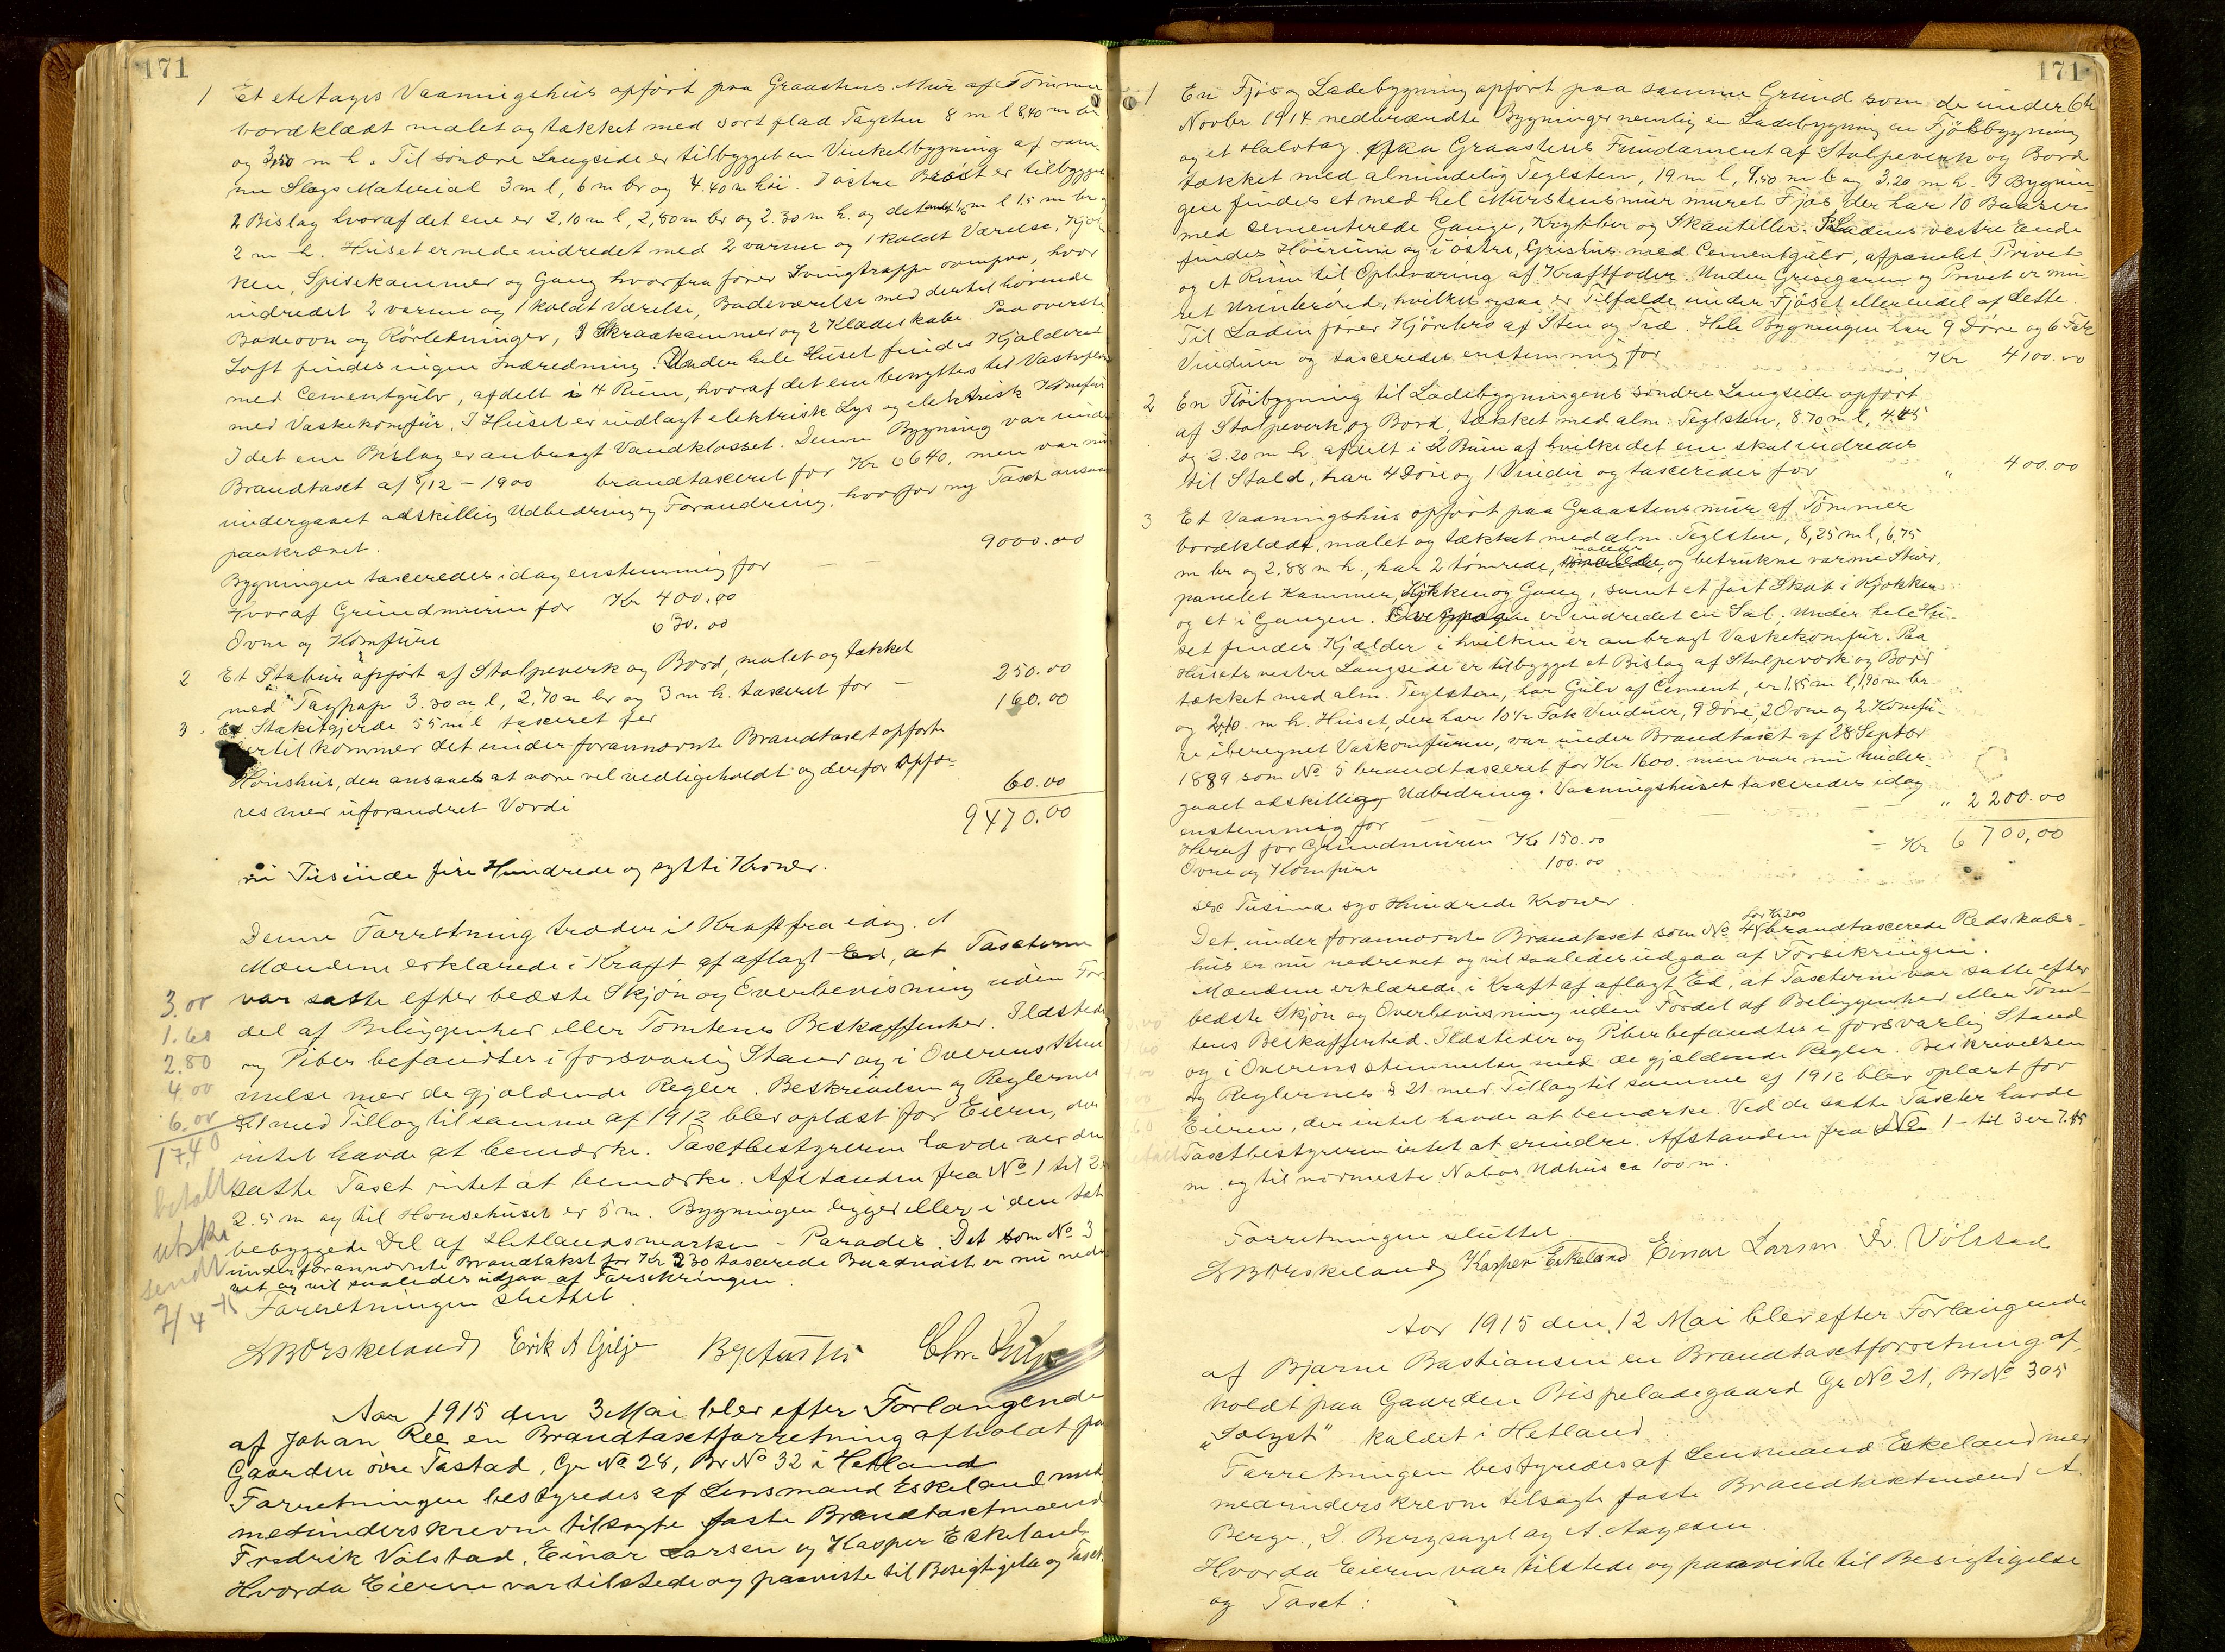 171
1 Et etetages Vaaningshus opført paa Graastens Mur af Tømmer
bordklædt malet og tækket med sort flad Tagsten 8 m l 8,40 m br
og 3,50 m h. Til søndre Langside er tilbygget en Vinkelbygning af sam-
me Slags Material 3 m l, 6 m br og 4.40 m høi. I østre Brøst er tilbygget
2 Bislag hvoraf det ene er 2,10 m l, 2,80 m br og 2.30 m h. og det andet m l 1.5 m br og
2 m h. Huset er nede indredet med 2 varme og 1 koldt Værelse, Kjøk
ken, Spisekammer og Gang hvorfra fører Svingtrappe ovenpaa, hvor
indredet 2 varme og 1 koldt Værelse, Badeværelse med dertil hørende
Badeovn og Rørledninger, Skraakammer og 2 Klædeskabe. Paa øverste
Loft findes ingen Indredning. Under hele Huset findes Kjælderrum
med Cementgulv, afdelt i 4 Rum, hvoraf det ene benyttes til Vaskeri
med Vaskekomfur. I Huset er indlagt elektrisk Lys og elektrisk Komfur
I det ene Bislag er anbragt Vandklosset. Denne Bygning var under
Brandtaxt af 8/12 - 1900 brandtaxeret for Kr 6640, men var nu
undergaaet adskillig Udbedring og Forandring, hvorfor ny Taxt ansaaes
paakrævet.
Bygningen taxeredes idag enstemmig for — — 9000.00
Hvoraf Grundmuren for Kr 400.00
Ovne og Komfure 630.00
2 Et Stabur opført af Stolpeverk og Bord, malet og tækket
med Tagpap 3.30 m l, 2.70 m br og 3 m h. taxeret for — 250.00
3. Et Stakitgjerde 55 m l taxeret for 160.00
Hertil kommer det under forannævnte Brandtaxt opførte
Hønshus, der ansaaes at være vel vedligeholdt og derfor opfø-
res med uforandret Værdi 60.00
9470.00
ni Tusinde fire Hundrede og sytti Kroner.
Denne Forretning træder i Kraft fra idag.
Mændene erklærede i Kraft af aflagt Ed, at Taxterne
var satte efter bedste Skjøn og Overbevisning uden For
del af Beliggenhed eller Tomtens Beskaffenhed. Ildsteder
og Piber befandtes i forsvarlig Stand og i Overensstem
melse med de gjældende Regler. Beskrivelsen og Reglernes
§ 21 med Tillæg til samme af 1912 blev oplæst for Eieren, der
intet havde at bemærke. Taxtbestyreren havde ved den
satte Taxt intet at bemærke. Afstanden fra No 1 til 2 er
2.5 m og til Hønsehuset er 5 m. Bygningen ligger eller i den tæt
bebyggede Del af Hetlandsmarken - Paradis. Det som No 3
under forannævnte Brandtakst for Kr 230 taxerede Baadnøst er nu nedre
vet og vil saaledes udgaa af Forsikringen.
Forretningen sluttet.
3.00
1.60
2.80
4.00
6.00
17,40
betalt
utskr
sendt
7/4 -15
Eskeland Erik A Gilje
Aar 1915 den 3 Mai blev efter Forlangende
af Johan Ree en Brandtaxtforretning afholdt paa
Gaarden øvre Tastad, Gr No 28, Br No 32 i Hetland
Forretningen bestyredes af Lensmand Eskeland med
medunderskrevne tilsagte faste Brandtaxtmænd
Fredrik Vølstad, Einar Larsen og Kasper Eskeland
Hvorda Eieren var tilstede og paaviste til Besigtigelse og Taxt:
171
1 En Fjøs og Ladebygning opført paa samme Grund som de under 6te
Novbr 1914 nedbrændte Bygninger nemlig en Ladebygning en Fjøsbygning
og et Halvtag. Graastens Fundament af Stolpeverk og Bord
tækket med almindelig Teglsten, 19 m l, 9.50 m b og 3.20 m h. I Bygnin
gen findes et med hel Murstensmur muret Fjøs, der har 10 Baaser
med cementerede Gange, Krybber og Skantiller. I Ladens vestre Ende
findes Høirum og i østre, Grishus med Cementgulv, afpanelet Privet
og et Rum til Opbevaring af Kraftfoder. Under Grisegaren og Privet er mu
ret Urinbrønd, hvilket ogsaa er Tilfælde under Fjøset eller endel af dette.
Til Laden fører Kjørebro af Sten og Træ. Hele Bygningen har 9 Døre og 6 Fak
Vinduer og taxeredes enstemmig for Kr 4100.00
2 En Fløibygning til Ladebygningens søndre Langside opført
af Stolpeverk og Bord, tækket med alm. Teglsten, 8.70 m l, 4.45
og 2.20 m h. afdelt i 2 Rum af hvilke det ene skal indredes
til Stald, har 4 Døre og 1 Vindu og taxeredes for " 400.00
3 Et Vaaningshus opført paa Graastensmur af Tømmer
bordklædt, malet og tækket med alm. Teglsten, 8,25 m l, 6,75
m br og 2,88 m h., har 2 tømrede, malede og betrukne varme Stuer,
panelet Kammer, Kjøkken og Gang, samt et fast Skab i Kjøkken
og et i Gangen. Ovenpaa er indredet en Sal. Under hele Hu-
set findes Kjælder i hvilken er anbragt Vaskekomfur. Paa
Husets vestre Langside er tilbygget et Bislag af Stolpeverk og Bord
tækket med alm. Teglsten, har Gulv af Cement, er 1,85 m l, 1,90 m br.
og 2,10 m h. Huset, der har 10 1/2 Fak Vinduer, 9 Døre, 2 Ovne og 2 Komfu-
re iberegnet Vaskomfuren, var under Brandtaxt af 28 Septbr
1889 som No 5 brandtaxeret for Kr 1600. men var nu under-
gaaet adskillig Udbedring. Vaaningshuset taxeredes idag
enstemmig for — — — " 2200.00
Heraf for Grundmuren Kr 150.00 = Kr 6700,00
Ovne og Komfure 100.00
sex Tusinde syv Hundrede Kroner.
Det under forannævnte Brandtaxt som No 4 for Kr 200 brandtaxerede Redskabs-
hus er nu nedrevet og vil saaledes udgaa af Forsikringen.
Mændene erklærede i Kraft af aflagt Ed, at Taxterne var satte efter
bedste Skjøn og Overbevisning uden Fordel af Beliggenhed eller Tom-
tens Beskaffenhed. Ildsteder og Piber befandtes i forsvarlig Stand
og i Overensstemmelse med de gjældende Regler. Beskrivelsen
og Reglernes § 21 med Tillæg til samme af 1912 blev oplæst for
Eieren, der intet havde at bemærke. Ved de satte Taxter havde
Taxtbestyreren intet at erindre. Afstanden fra No 1 - til 3 er 7.45
m. og til nærmeste Nabos Udhus ca 100 m.
Forretningen sluttet
Eskeland Kasper Eskeland Einar Larsen Fr. Vølstad
Aar 1915 den 12 Mai blev efter Forlangende
af Bjarne Bastiansen en Brandtaxtforretning af-
holdt paa Gaarden Bispeladegaard Gr No 21, Br No 305
„Solyst" kaldet i Hetland
Forretningen bestyredes af Lensmand Eskeland med
medunderskrevne tilsagte faste Brandtaxtmænd A.
Berge, D. Bergsagel og A. Aagesen.
Hvorda Eieren var tilstede og paaviste til Besigtigelse
og Taxt: